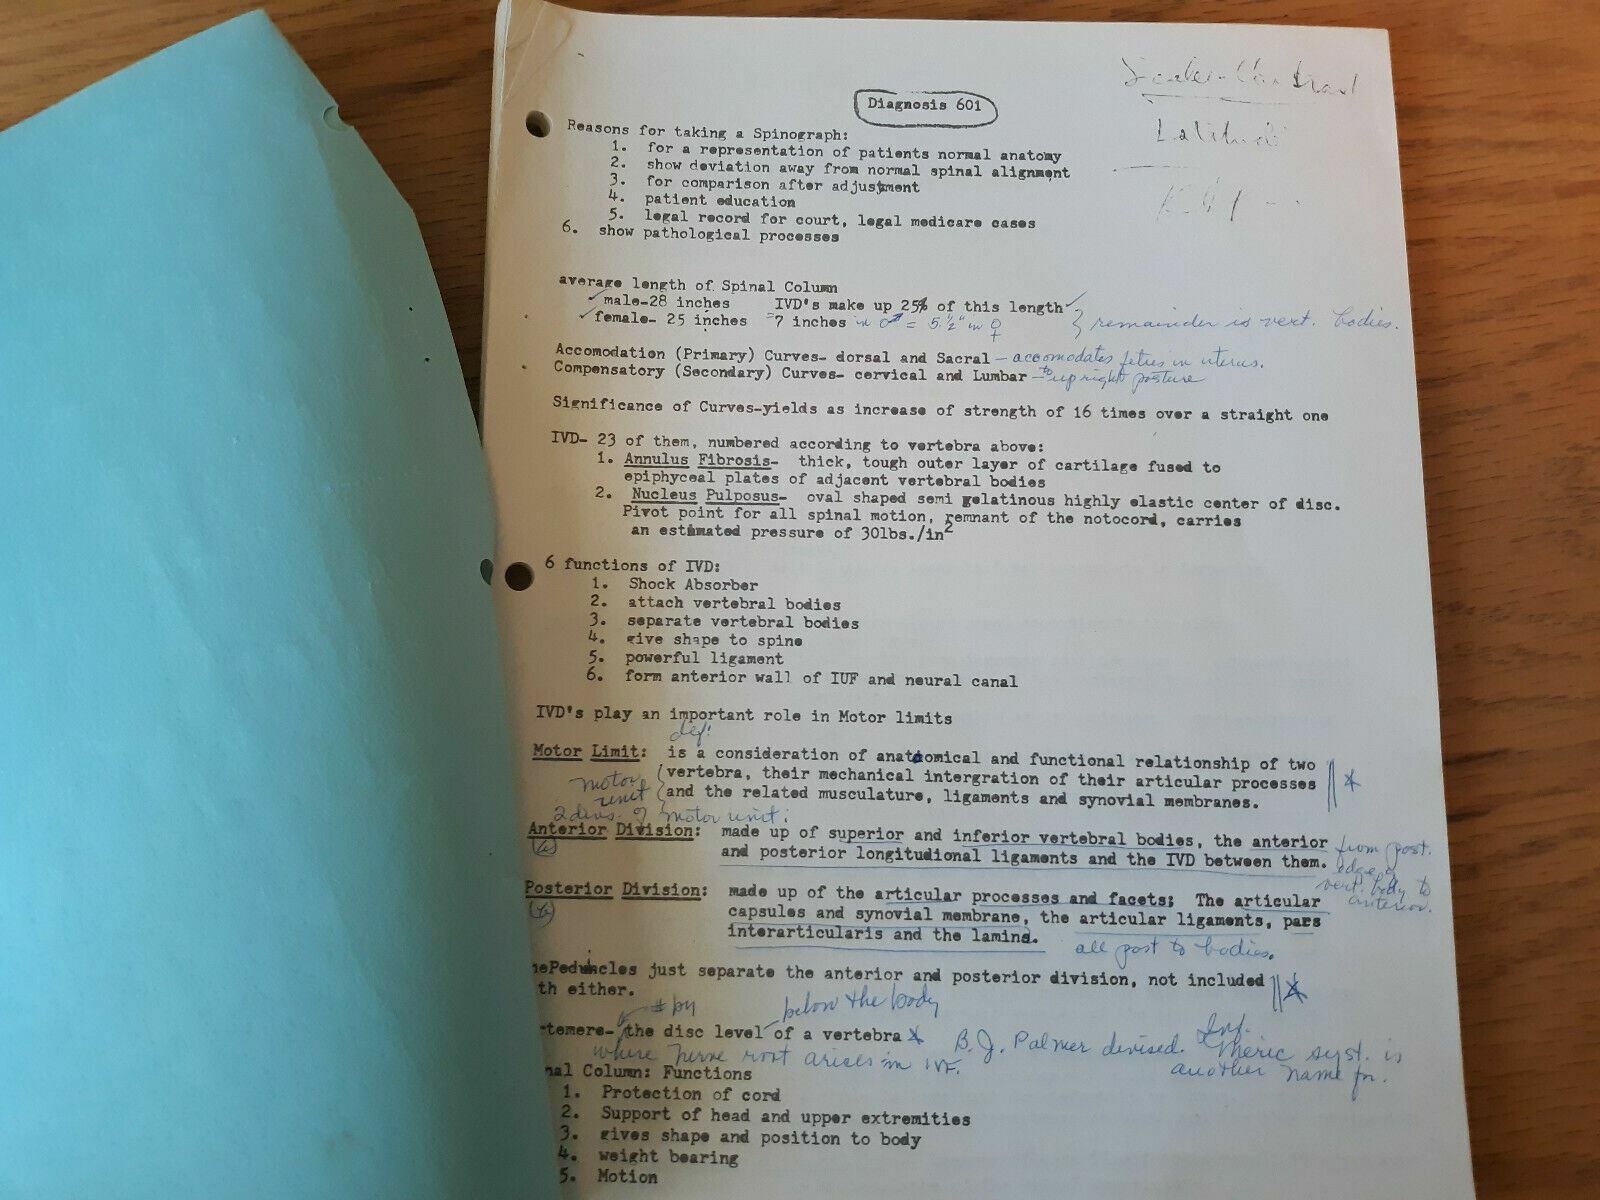 Diagnosis 601
Reasons for taking a Spinograph:
1. for a representation of patients normal anatomy
2. show deviation away from normal spinal alignment
3. for comparison after adjustment
4. patient education
5. legal record for court, legal medicare cases
6. show pathological processes
average length of Spinal Column
male-28 inches IVD's make up 25% of this length
female- 25 inches =7 inches in ♂ = 5 ½" in ♀ } remainder is vert. bodies.
Accomodation (Primary) Curves- dorsal and Sacral - accomodates fetus in uterus.
Compensatory (Secondary) Curves- cervical and Lumbar - to upright posture
Significance of Curves-yields as increase of strength of 16 times over a straight one
IVD- 23 of them, numbered according to vertebra above:
1. Annulus Fibrosis- thick, tough outer layer of cartilage fused to
epiphyceal plates of adjacent vertebral bodies
2. Nucleus Pulposus- oval shaped semi gelatinous highly elastic center of disc.
Pivot point for all spinal motion, remnant of the notocord, carries
an estimated pressure of 30lbs./in2
6 functions of IVD:
1. Shock Absorber
2. attach vertebral bodies
3. separate vertebral bodies
4. give shape to spine
5. powerful ligament
6. form anterior wall of IUF and neural canal
IVD's play an important role in Motor limits
def:
Motor Limit: is a consideration of anatomical and functional relationship of two
vertebra, their mechanical intergration of their articular processes
motor unit { and the related musculature, ligaments and synovial membranes.
2 divs. of motor unit:
Anterior Division: made up of superior and inferior vertebral bodies, the anterior
and posterior longitudional ligaments and the IVD between them.
from post. edge of vert. body to anterior.
Posterior Division: made up of the articular processes and facets; The articular
capsules and synovial membrane, the articular ligaments, pars
interarticularis and the lamina. all post to bodies.
Peduncles just separate the anterior and posterior division, not included
th either.
# by below the body
temere- the disc level of a vertebra B.J. Palmer devised. Meric syst. is another name for.
where nerve root arises in IVF.
nal Column: Functions
1. Protection of cord
2. Support of head and upper extremities
3. gives shape and position to body
4. weight bearing
5. Motion